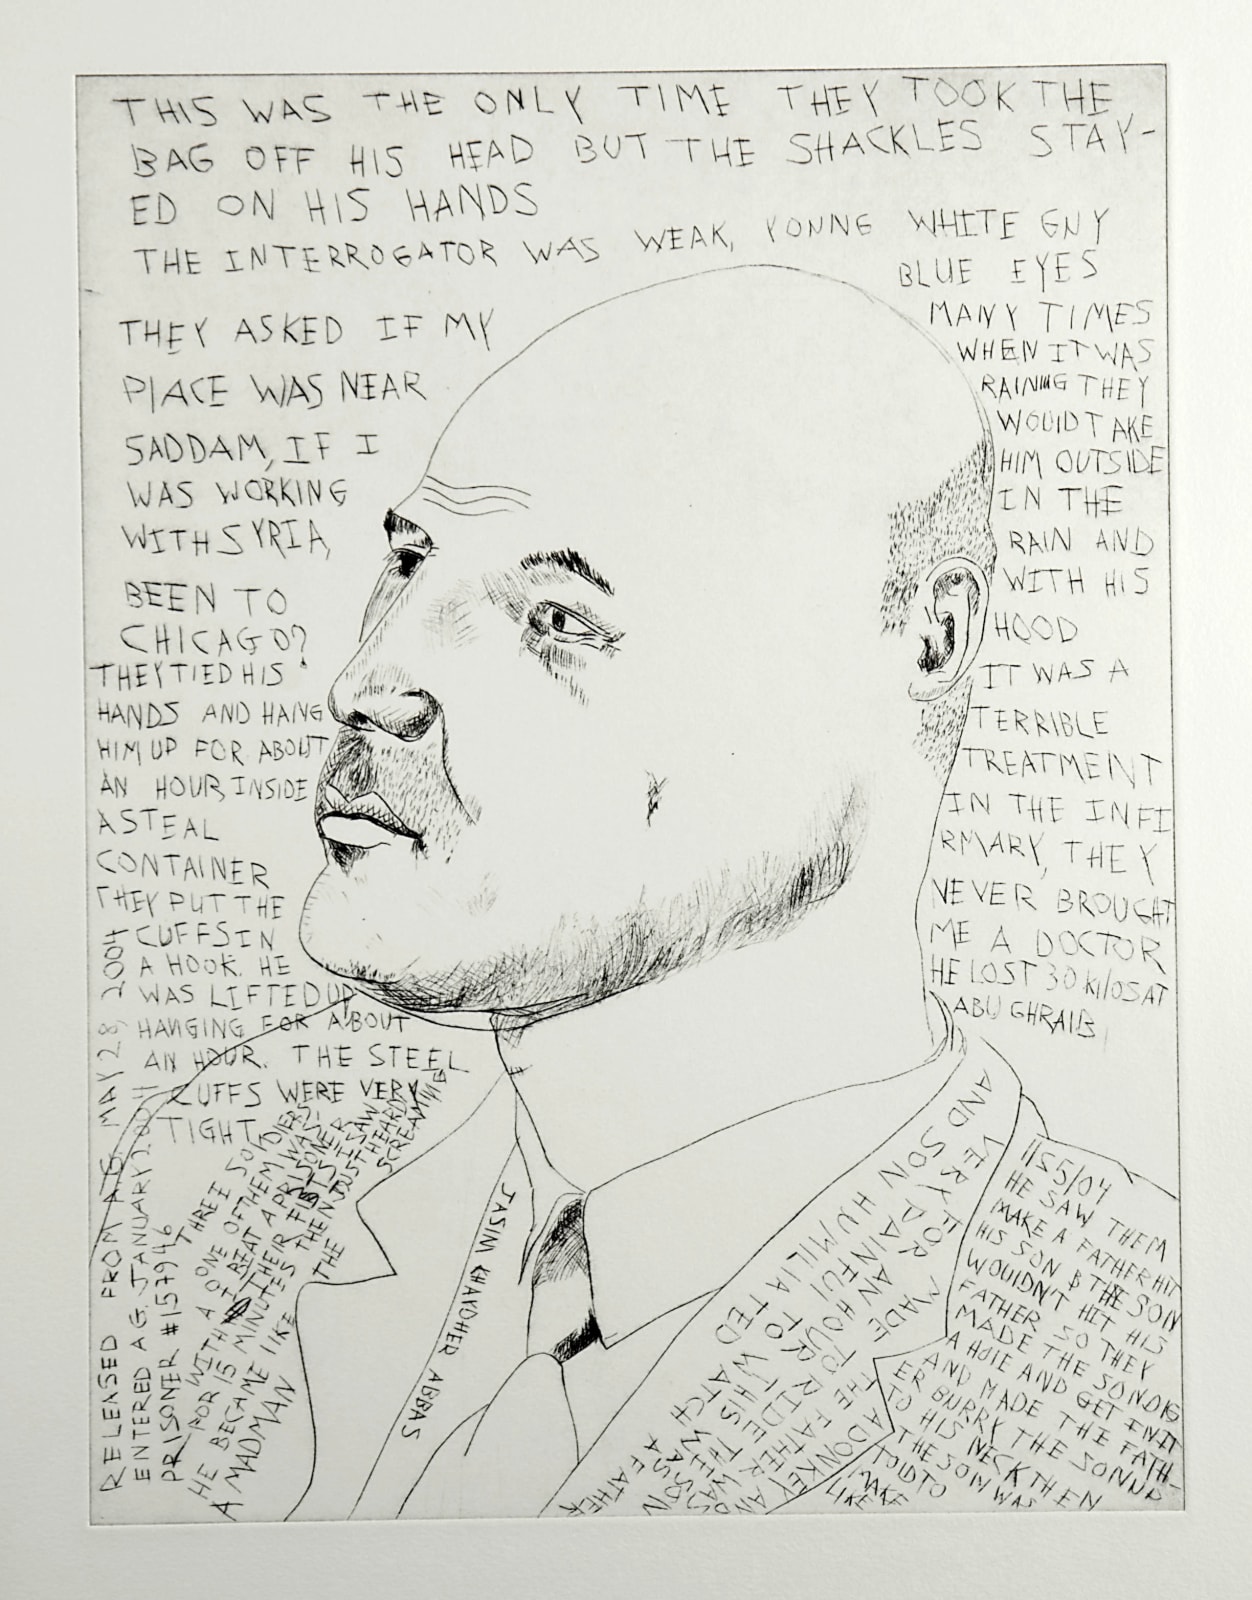 THIS WAS THE ONLY TIME THEY TOOK THE
BAG OFF HIS HEAD BUT THE SHACKLES STAY-
ED ON HIS HANDS
THE INTERROGATOR WAS WEAK, YONNG WHITE GNY
BLUE EYES
THEY ASKED IF MY
PLACE WAS NEAR
SADDAM, IF I
WAS WORKING
WITH SYRIA,
BEEN TO
CHICAGO?
THEY TIED HIS
HANDS AND HANG
HIM UP FOR ABOUT
AN HOUR, INSIDE
A STEAL
CONTAINER
THEY PUT THE
CUFFS IN
A HOOK. HE
WAS LIFTED UP
HANGING FOR ABOUT
AN HOUR. THE STEEL
CUFFS WERE VERY
TIGHT
MANY TIMES
WHEN IT WAS
RAINING THEY
WOULD TAKE
HIM OUTSIDE
IN THE
RAIN AND
WITH HIS
HOOD
IT WAS A
TERRIBLE
TREATMENT
IN THE INFI
RMARY, THEY
NEVER BROUGHT
ME A DOCTOR
HE LOST 30 KILOS AT
ABU GHRAIB
RELEASED FROM A.G. MAY 28, 2004
ENTERED A.G. JANUARY 2004
PRISONER #157946
THREE SOLDIERS
HE FOR WITH A ONE OF THEM WAS
BEAT A PRISONER
HE BECAME 15 MINUTES THEIR FISTS I SAW
A MADMAN LIKE THEN JUST HEARD
THE SCREAMING
JASIM KHAYDHER ABBAS
1/25/04
HE SAW THEM
MAKE A FATHER HIT
HIS SON & THE SON
WOULDN'T HIT HIS
FATHER SO THEY
MADE THE SON DIG
A HOLE AND GET IN IT
AND MADE THE FATH-
ER BURRY THE SON UP
TO HIS NECK THEN
THE SON WAS
TOLD TO
MAKE
LIKE
A DONKEY AN
THE FATHER
MADE TO RIDE
FOR AN HOUR
VERY PAINFUL TO WATCH
AND SON HUMILIATED
A FATHER